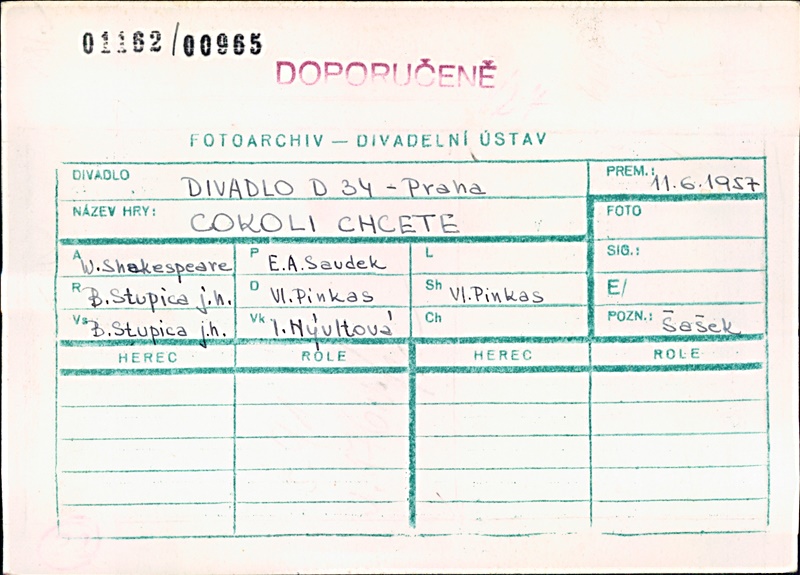 01162/00965
DOPORUČENĚ
FOTOARCHIV — DIVADELNÍ ÚSTAV
DIVADLO DIVADLO D 34 - Praha PREM.: 11.6.1957
NÁZEV HRY: COKOLI CHCETE FOTO
A W. Shakespeare P E.A. Saudek L SIG.:
R B. Stupica j.h. D Vl. Pinkas Sh Vl. Pinkas E/
Vs B. Stupica j.h. Vk I. Nývltová Ch POZN.: Šašek
HEREC ROLE HEREC ROLE